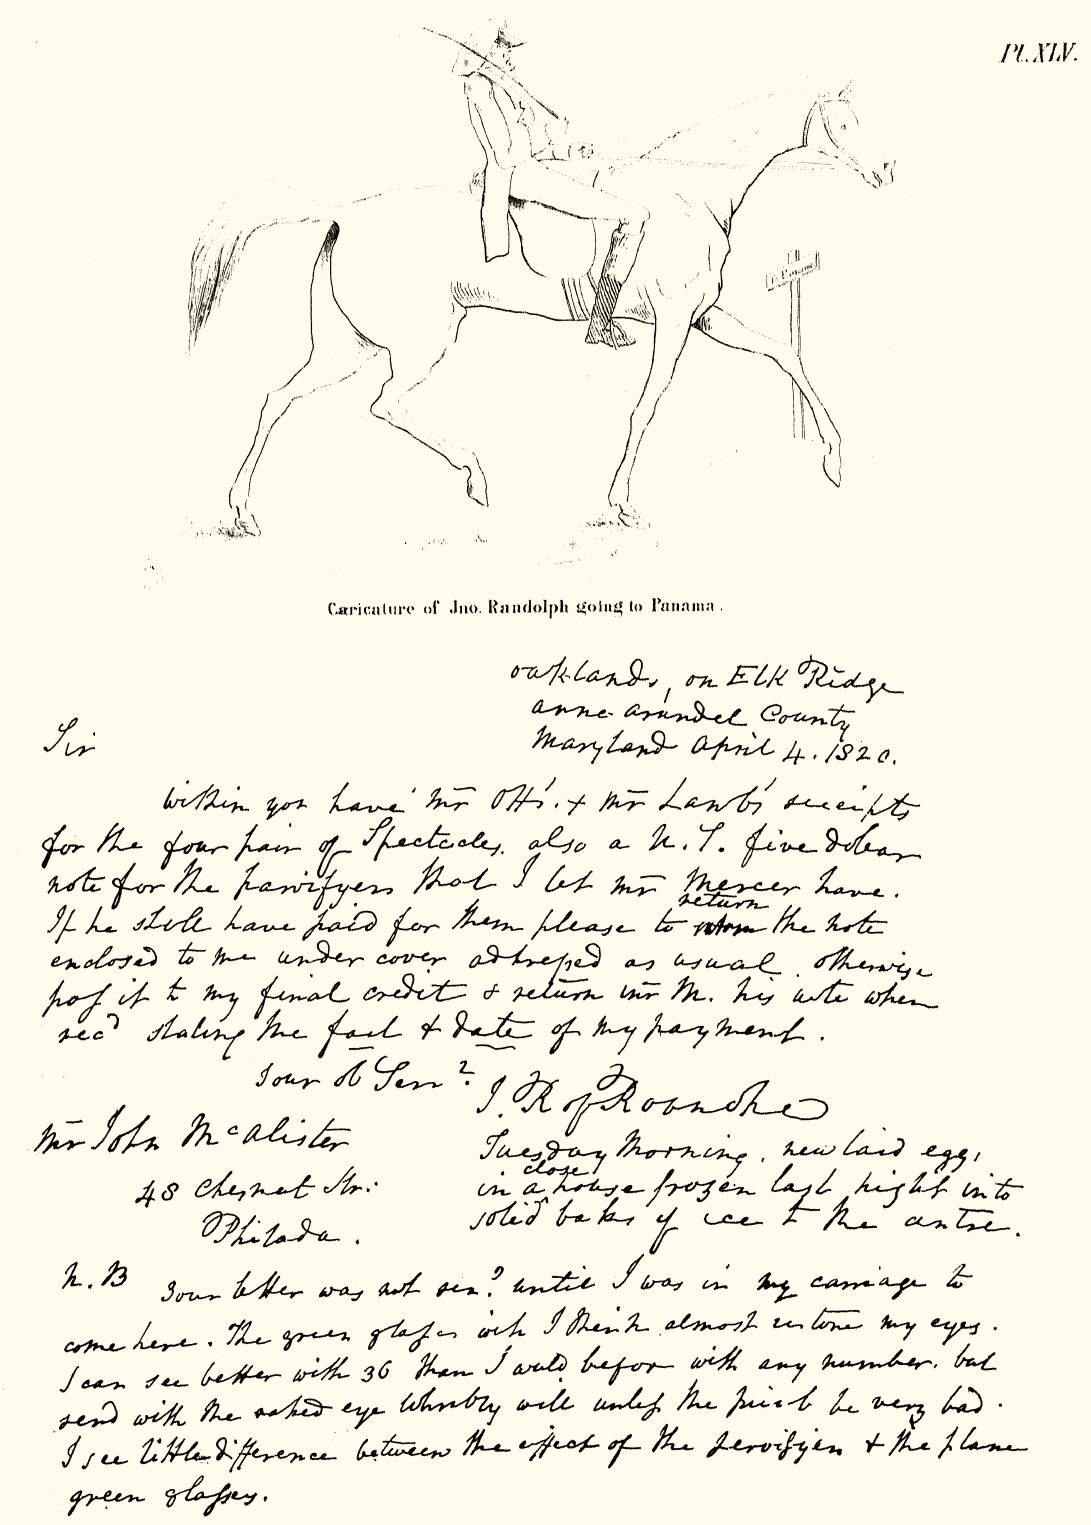 Pl. XLV.
Caricature of Jno. Randolph going to Panama.
oaklands, on Elk Ridge
anne arundel County
Maryland April 4. 1820.
Sir
within you have Mr Ott's. & Mr Lamb's receipts
for the four pair of Spectacles. also a U. S. five dollar
note for the that I let Mr Mercer have.
return
If he shall have paid for them please to the note
enclosed to me under cover addressed as usual. otherwise
pass it to my final credit & return Mr M. his note when
recd stating the fact & date of my payment.
your ob Servt.
J. R of Roanoke
Mr John McAlister
48 Chesnut Str:
Philada.
Tuesday Morning. new laid eggs
close
in a house frozen last night into
solid balls of ice to the centre.
N.B your letter was not until I was in my carriage to
come here. The green glasses I think almost restore my eyes.
I can see better with 36 than I could before with any number. but
with the naked eye will unless the print be very bad.
I see little difference between the effect of the & the plane
green glasses.